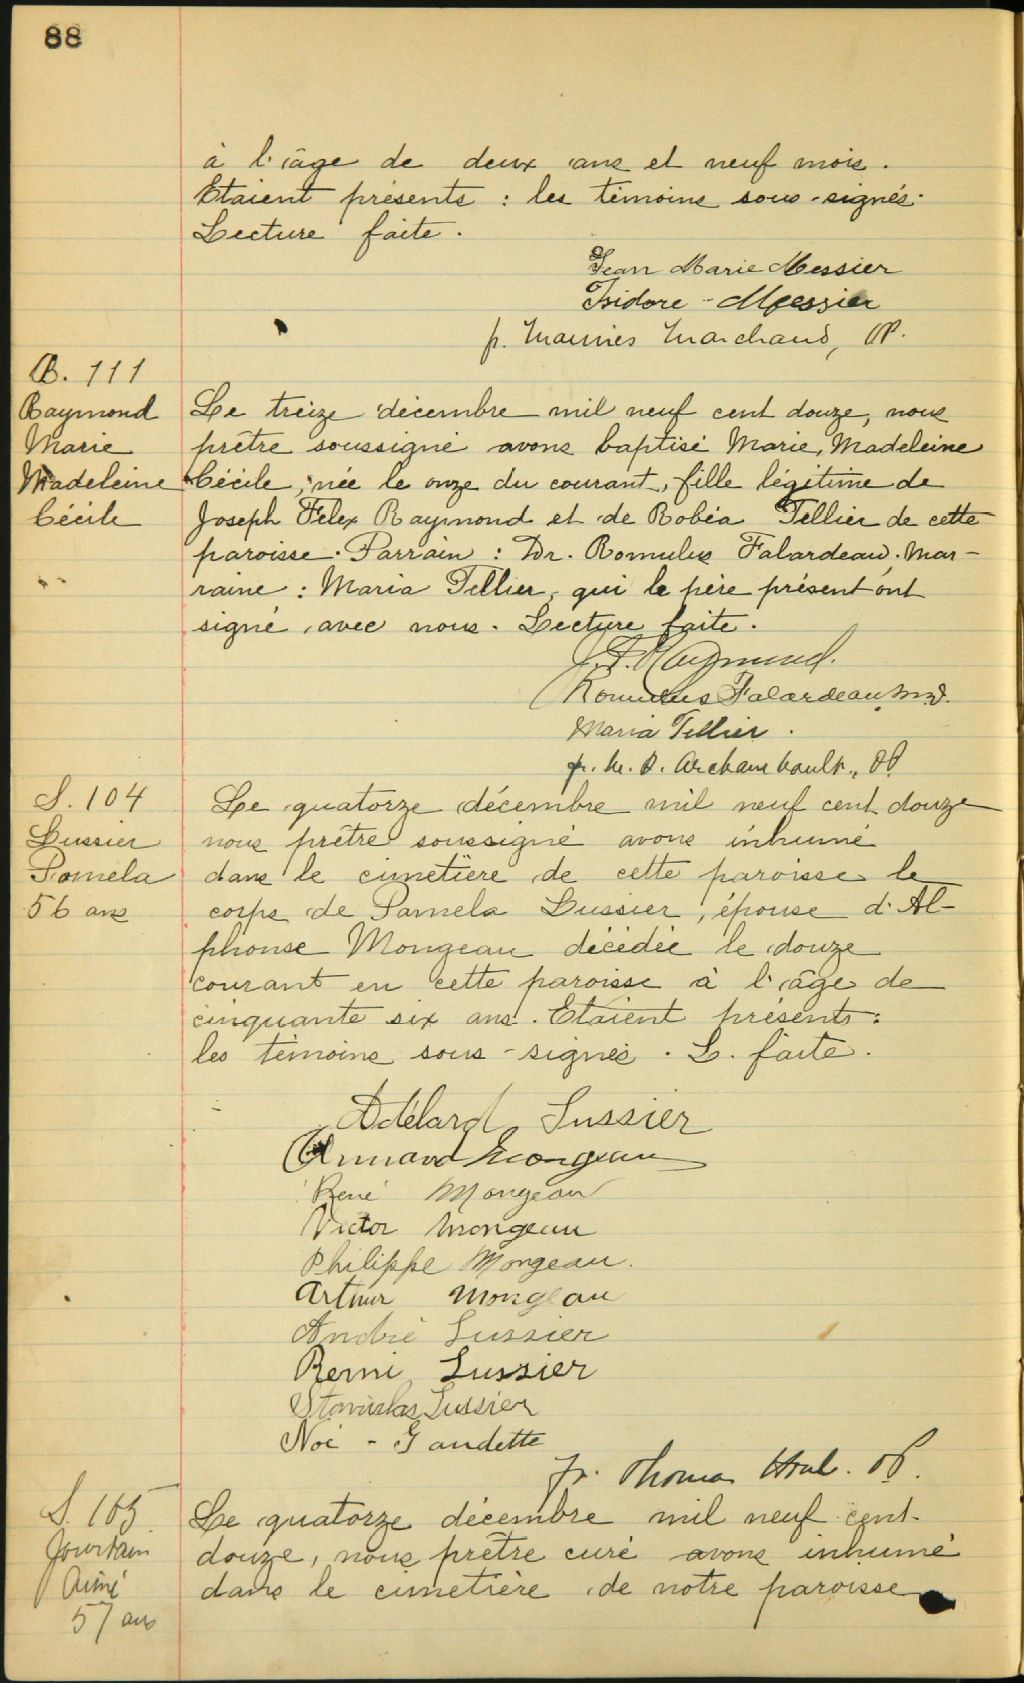 88
à l'âge de deux ans et neuf mois.
Etaient présents : les témoins sous-signés.
Lecture faite.
Jean Marie Messier
Isidore - Messier
p. Marchand, OP.
B. 111
Raymond
Marie
Madeleine
Cécile
Le treize décembre mil neuf cent douze, nous
prêtre soussigné avons baptisé Marie, Madeleine
Cécile, née le onze du courant, fille légitime de
Joseph Felex Raymond et de Robéa Tellier de cette
paroisse. Parrain : Dr. Romulus Falardeau. Mar-
raine : Maria Tellier, qui le père présent ont
signé avec nous. Lecture faite.
J. F. Raymond.
Romulus Falardeau, m.d.
Maria Tellier.
fr. M. D. Archambault., OP
S. 104
Lussier
Pamela
56 ans
Le quatorze décembre mil neuf cent douze
nous prêtre soussigné avons inhumé
dans le cimetière de cette paroisse le
corps de Pamela Lussier, épouse d'Al-
phonse Mongeau décédée le douze
courant en cette paroisse à l'âge de
cinquante six ans. Etaient présents :
les témoins sous-signés. L. faite.
Adélard Lussier
Armand Mongeau
René Mongeau
Victor Mongeau
Philippe Mongeau.
Arthur Mongeau
André Lussier
Remi Lussier
Stanislas Lussier
Noé - Gaudette
fr. Thomas OP.
S. 105
Jourdain
Aimé
57 ans
Le quatorze décembre mil neuf cent-
douze, nous prêtre curé avons inhumé
dans le cimetière de notre paroisse